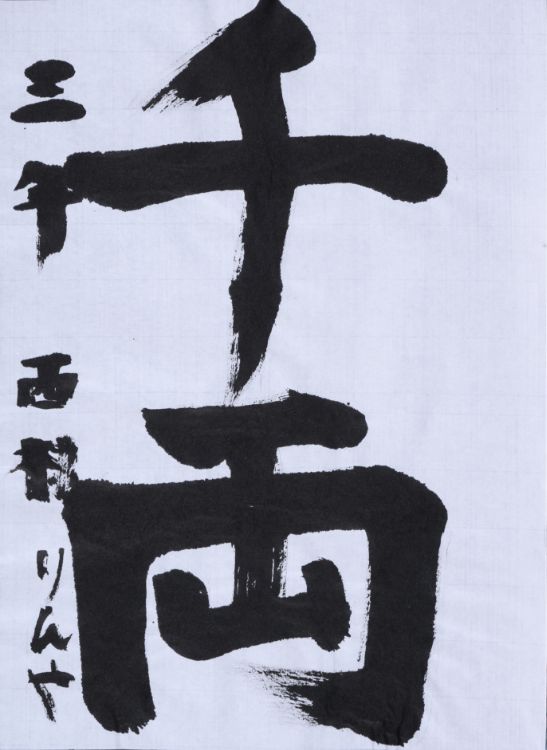 千両
三年 西村りんや